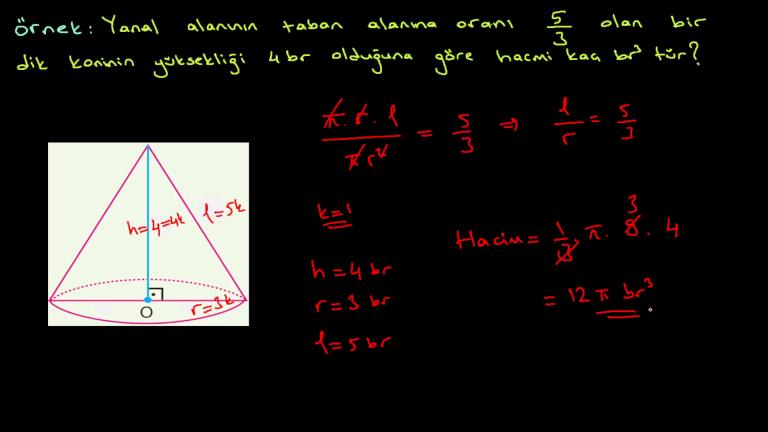 örnek: Yanal alanının taban alanına oranı 5/3 olan bir
dik koninin yüksekliği 4 br olduğuna göre hacmi kaç br³ tür?
π.r.l / πr² = 5/3 ⇒ l/r = 5/3
h=4=4k
l=5k
r=3k
O
k=1
h=4 br
r=3 br
l=5 br
Hacim = 1/3 . π. 9 3 . 4
= 12 π br³